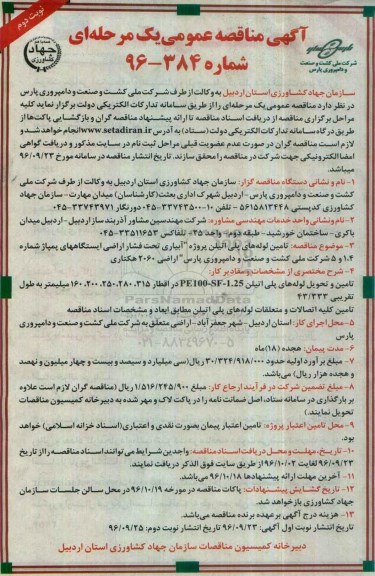 نوبت دوم
آگهی مناقصه عمومی یک مرحله‌ای
شماره ۳۸۴-۹۶
جهاد کشاورزی
شرکت ملی کشت و صنعت
و دامپروری پارس
سازمان جهاد کشاورزی استان اردبیل به وکالت از طرف شرکت ملی کشت و صنعت و دامپروری پارس
در نظر دارد مناقصه عمومی یک مرحله‌ای را از طریق سامانه تدارکات الکترونیکی دولت برگزار نماید کلیه
مراحل برگزاری مناقصه از دریافت اسناد مناقصه تا ارائه پیشنهاد مناقصه گران و بازگشایی پاکت‌ها از
طریق درگاه سامانه تدارکات الکترونیکی دولت (ستاد) به آدرس www.setadiran.ir انجام خواهد شد و
لازم است مناقصه گران در صورت عدم عضویت قبلی مراحل ثبت نام در سایت مذکور و دریافت گواهی
امضا الکترونیکی جهت شرکت در مناقصه را محقق سازند. تاریخ انتشار مناقصه در سامانه مورخ ۹۶/۰۹/۲۳
میباشد.
۱- نام و نشانی دستگاه مناقصه گزار: سازمان جهاد کشاورزی استان اردبیل به وکالت از طرف شرکت ملی
کشت و صنعت و دامپروری پارس - اردبیل شهرک اداری بعثت (کارشناسان) میدان مهارت - سازمان جهاد
کشاورزی کدپستی ۵۶۱۵۸۱۳۴۴۸ - تلفن ۱۰-۳۳۷۴۳۵۰۰-۰۴۵ دورنگار ۳۳۷۴۳۹۷۱-۰۴۵
۲- نام و نشانی واحد خدمات مهندسی مشاور: شرکت مهندسین مشاور آذربند ساز اردبیل - اردبیل میدان
باکری - ساختمان خورشید - طبقه دوم - واحد ۲۴۵ تلفاکس ۳۳۵۱۱۶۵۳-۰۴۵
۳- موضوع مناقصه: تامین لوله‌های پلی اتیلن پروژه "آبیاری تحت فشار اراضی ایستگاههای پمپاژ شماره
۱،۴ و ۵ شرکت ملی کشت و صنعت و دامپروری پارس" اراضی ۲۰۶۰ هکتاری
۴- شرح مختصری از مشخصات و مقادیر کار:
تامین و تحویل لوله‌های پلی اتیلن PE100-SF-1.25 در اقطار ۳۱۵، ۲۸۰، ۲۵۰، ۲۰۰، ۱۶۰ میلیمتر به طول
تقریبی ۴۳/۳۳۳
تامین کلیه اتصالات و متعلقات لوله‌های پلی اتیلن مطابق ابعاد و مشخصات اسناد مناقصه
۵- محل اجرای کار: استان اردبیل - شهر جعفر آباد - اراضی متعلق به شرکت ملی کشت و صنعت و دامپروری
پارس
۶- مدت پیمان: هجده (۱۸) ماه
۷- مبلغ برآورد اولیه حدود ۳۰/۳۲۴/۹۱۸/۰۰۰ ریال (سی میلیارد و سیصد و بیست و چهار میلیون و نهصد
و هجده هزار ریال) می‌باشد.
۸- مبلغ تضمین شرکت در فرآیند ارجاع کار: مبلغ ۱/۵۱۶/۲۴۵/۹۰۰ ریال (مناقصه گران لازم است علاوه
بر بارگذاری در سامانه ستاد، اصل ضمانت نامه را در پاکت لاک و مهر شده به دبیرخانه کمیسیون مناقصات
تحویل نمایند.)
۹- محل تامین اعتبار پروژه: تامین اعتبار پیمان بصورت نقدی و اعتباری (اسناد خزانه اسلامی) خواهد
بود.
۱۰- تاریخ، مهلت و محل دریافت اسناد مناقصه: واجدین شرایط می‌توانند اسناد مناقصه را از تاریخ
۹۶/۰۹/۲۳ لغایت ۹۶/۱۰/۰۲ از طریق سایت فوق الذکر دریافت نمایند.
۱۱- آخرین مهلت ارائه پیشنهادها ۹۶/۱۰/۱۸ می‌باشد.
۱۲- تاریخ گشایش پیشنهادات: پاکات مناقصه در مورخه ۹۶/۱۰/۱۹ در محل سالن جلسات سازمان
جهاد کشاورزی باز خواهد شد.
۱۳- هزینه درج آگهی بر عهده برنده مناقصه می‌باشد.
تاریخ انتشار نوبت اول آگهی: ۹۶/۰۹/۲۳ تاریخ انتشار نوبت دوم: ۹۶/۰۹/۲۵
دبیرخانه کمیسیون مناقصات سازمان جهاد کشاورزی استان اردبیل